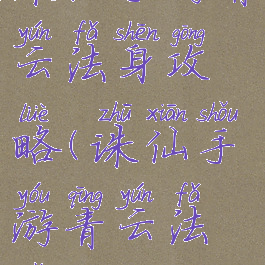 yún fǎ shēn gōng
云法身攻
lüè zhū xiān shǒu
略(诛仙手
yóu qīng yún fǎ
游青云法